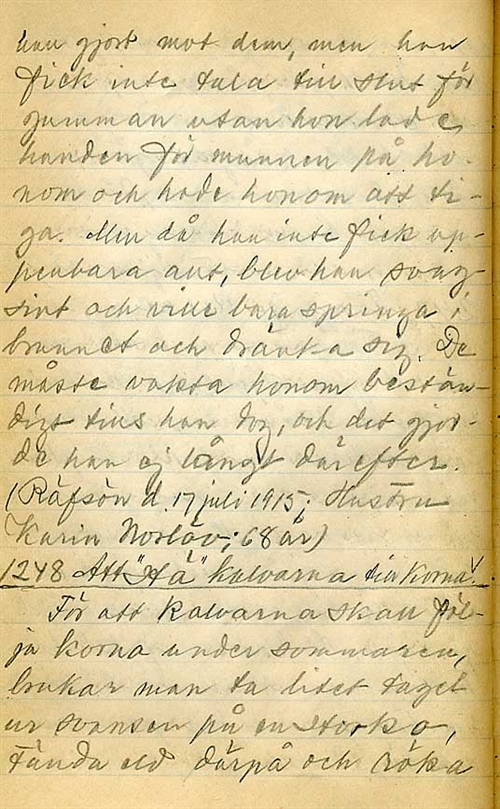 han gjort mot dem, men han
fick inte tala till slut för
gumman utan hon lade
handen för munnen på ho-
nom och bade honom att ti-
ga. Men då han inte fick up-
penbara allt, blev han svag-
sint och ville bara springa i
brunnet och dränka sig. De
måste vakta honom bestän-
digt tills han dog, och det gjor-
de han ej långt därefter.
(Räfsön d. 17 juli 1915; Hustru
Karin Norlöv; 68 år)
1248 Att "Hä" kalvarna till korna.
För att kalvarna skall föl-
ja korna under sommaren,
brukar man ta litet tagel
ur svansen på en ko,
tända eld därpå och röka